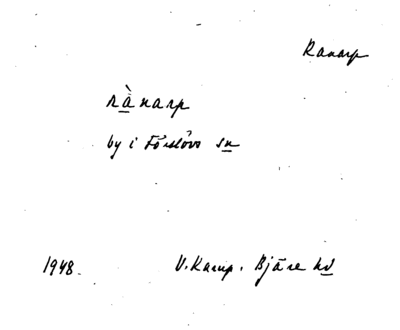 Ranarp
rànarp
by i Förslövs sn
1948. V. Karup. Bjäre hd